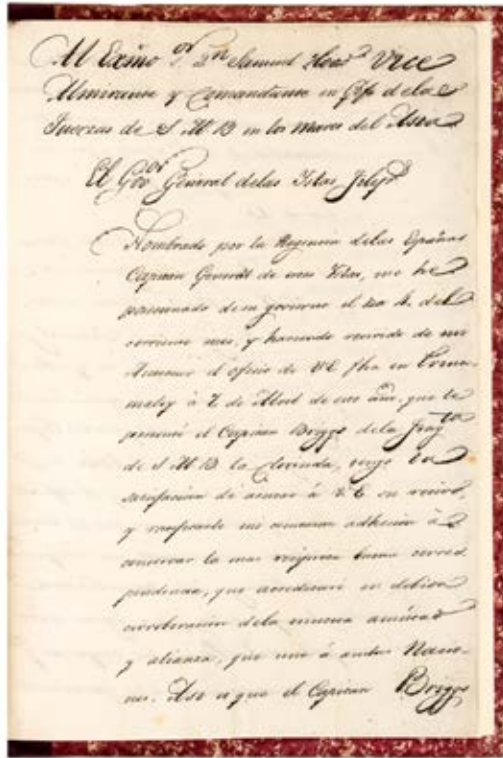 Al Exmo Sr. Dn Samuel Hood Vice
Almirante y Comandante en Gefe de las
Fuerzas de S. M. B. en los Mares del Asia
El Gov.or General de las Islas Felip.s
Nombrado por la Regencia de las Españas
Capitan General de estas Islas, me he
posesionado de su govierno el dia 4. del
corriente mes, y haviendo recivido de mi
Antecesor el oficio de V.E. fha en
à 7 de Abril de este año, que le
presentó el Capitan Briggs de la Frag.ta
de S. M. B. la Clorinda, tengo la
satisfacion de acusar à V. E. su recivo,
y manifestarle mi adhesion à
conservar la mas reciproca buena corres-
pondencia, que acreditará en debida
corroboracion de la amistad
y alianza, que une à ambas Nacio-
nes. Asi es que el Capitan Briggs